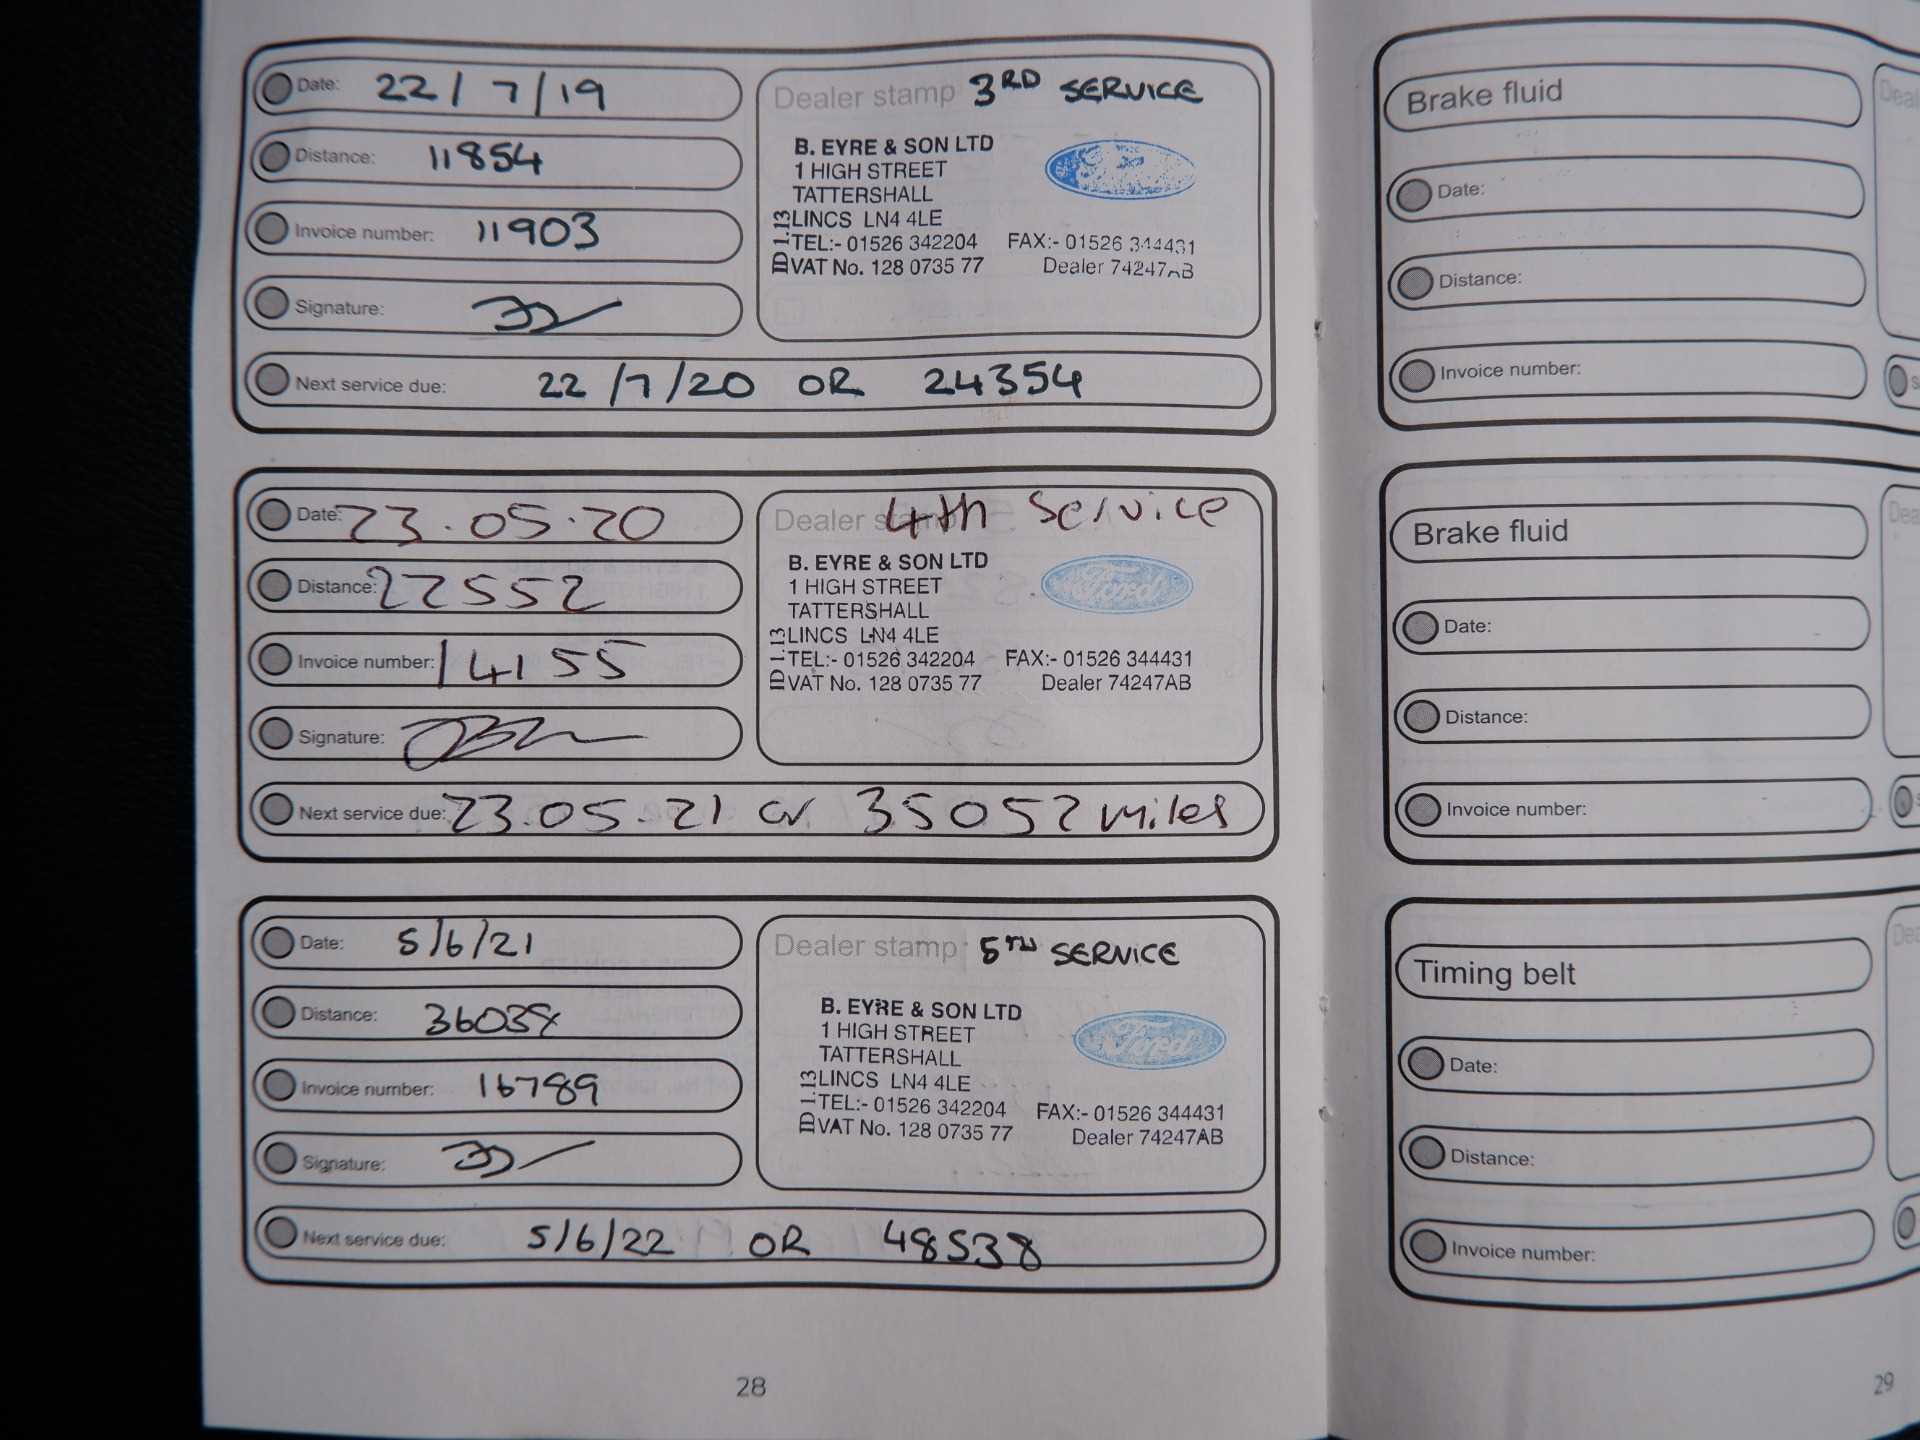 Date: 22/7/19
Distance: 11854
Invoice number: 11903
Signature:
Next service due: 22/7/20 OR 24354
Dealer stamp 3RD SERVICE
B. EYRE & SON LTD
1 HIGH STREET
TATTERSHALL
LINCS LN4 4LE
TEL:- 01526 342204 FAX:- 01526 344431
VAT No. 128 0735 77 Dealer 74247AB
ID 1.13
Date: 23.05.20
Distance: 22552
Invoice number: 14155
Signature:
Next service due: 23.05.21 or 35052 miles
Dealer stamp 4th Service
B. EYRE & SON LTD
Ford
1 HIGH STREET
TATTERSHALL
LINCS LN4 4LE
TEL:- 01526 342204 FAX:- 01526 344431
VAT No. 128 0735 77 Dealer 74247AB
ID 1.13
Date: 5/6/21
Distance: 36038
Invoice number: 16789
Signature:
Next service due: 5/6/22 OR 48538
Dealer stamp 5TH SERVICE
B. EYRE & SON LTD
Ford
1 HIGH STREET
TATTERSHALL
LINCS LN4 4LE
TEL:- 01526 342204 FAX:- 01526 344431
VAT No. 128 0735 77 Dealer 74247AB
ID 1.13
28
Brake fluid
Date:
Distance:
Invoice number:
Brake fluid
Date:
Distance:
Invoice number:
Timing belt
Date:
Distance:
Invoice number:
29